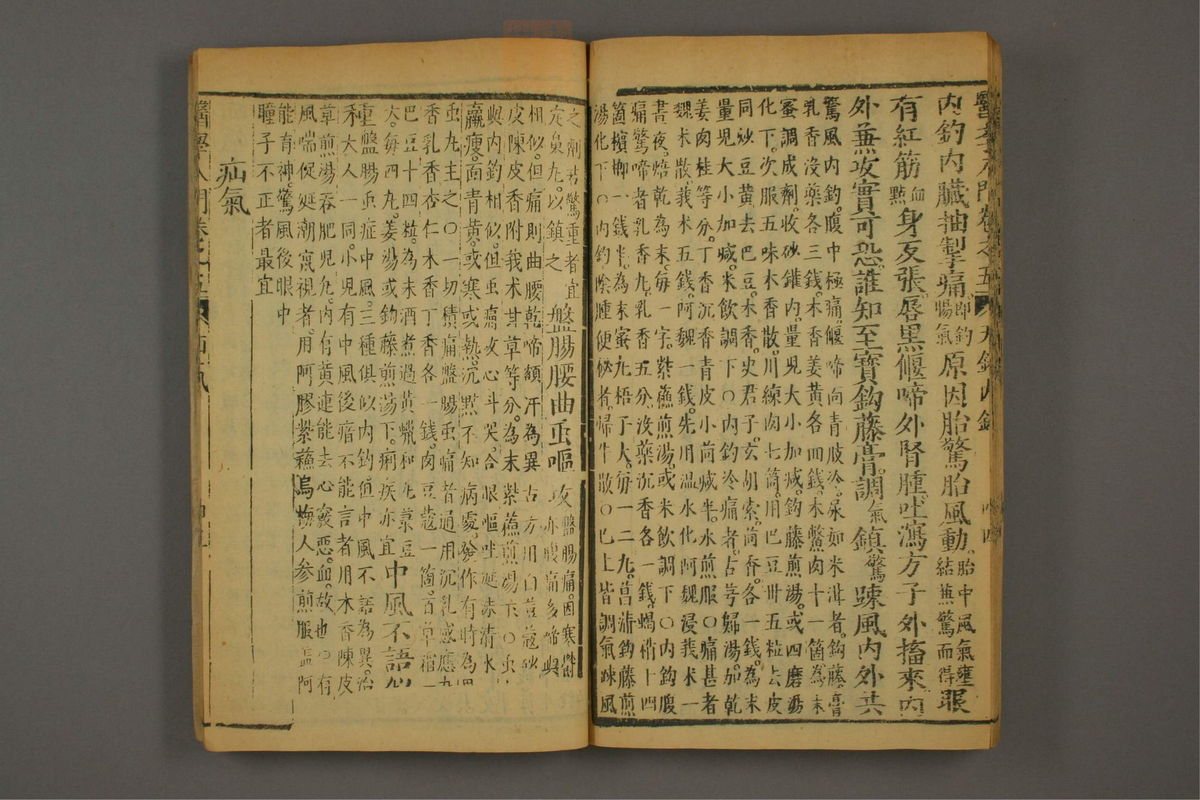 醫學入門卷之五 天釣內釣
內釣內臟抽掣痛即釣腸氣原因胎驚胎風動胎中風氣壅結兼驚而得眼
有紅筋血點身反張唇黑偃啼外腎腫吐瀉方子外搐來內
外兼攻實可恐誰知至寶鈎藤膏調氣鎮驚踈風內外共
驚風內鈎腹中極痛偃啼向青肢冷尿如米泔者鈎藤膏
乳香沒藥各三錢木香姜黃各四錢木鱉肉十一箇為末
蜜調成劑收砂罐內量兒大小加減鈎藤煎湯或四磨湯
化下次服五味木香散川練肉七箇用巴豆卅五粒去皮
同炒豆黃去巴豆木香史君子玄胡索茴香各一錢為末
量兒大小加減米飲調下○內釣冷痛者古芎歸湯加乾
姜肉桂等分丁香沉香青皮小茴減半水煎服○痛甚者
魏朮散莪朮五錢阿魏一錢先用溫水化阿魏浸莪朮一
晝夜焙乾為末每一字紫蘇煎湯或米飲調下○內釣腹
痛驚啼者乳香丸乳香五分沒藥沉香各一錢蝎梢十四
箇檳榔一錢半為末蜜丸梧子大每一二丸菖蒲鈎藤煎
湯化下○內釣陰腫便秘者歸牛散○已上皆調氣踈風
之劑若驚重者宜
定泉丸以鎮之盤腸腰曲虫嘔攻盤腸痛因寒鬱亦腹痛多啼與
相似但痛則曲腰乾啼額汗為異古方用白荳蔻砂
皮陳皮香附我朮甘草等分為末紫蘇煎湯下○虫
與內釣相似但虫痛攻心斗哭合眼嘔吐涎沫清水
羸瘦面青黃或寒或熱沉默不知病處發作有時為
虫丸主之○一切積痛盤腸虫痛者通用沉乳感應丸
香乳香杏仁木香丁香各一錢肉豆蔻一箇百草稍一
巴豆十四粒為末酒煮過黃蠟和丸菉豆
大每四九姜湯或鈎藤煎湯下痢疾亦宜中風不語似
重盤腸虫症中風三種俱似內釣值中風不語為異治
禾大人一同小兒有中風後瘖不能言者用木香陳皮
草煎湯吞肥兒丸內有黃連能去心竅惡血故也○有
風喘促涎潮竄視者用阿膠紫蘇烏梅人參煎服盖阿
能育神驚風後眼中
瞳子不正者最宜
疝氣
醫學入門卷之五